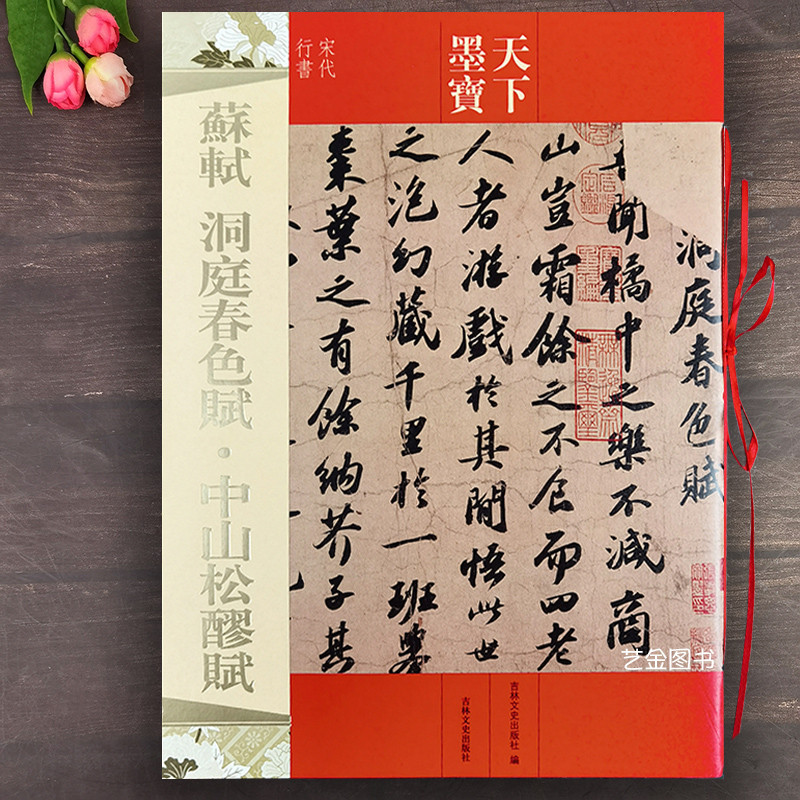 天下
墨寶
宋代
行書
蘇軾 洞庭春色賦·中山松醪賦
洞庭春色賦
聞橘中之樂不減商
山豈霜餘之不食而四老
人者游戲於其間悟此世
之泡幻藏千里於一班舉
棗葉之有餘納芥子其
艺金图书
吉林文史出版社 編
吉林文史出版社